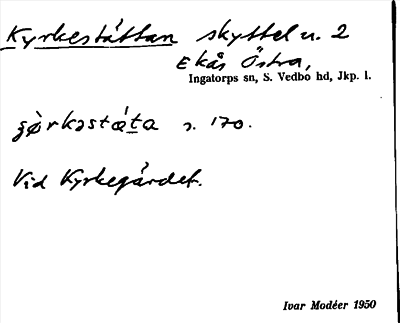 Kyrkestättan skyttel u. 2
Ekås Östra,
Ingatorps sn, S. Vedbo hd, Jkp. l.
s. 170.
Vid Kyrkegärdet.
Ivar Modéer 1950